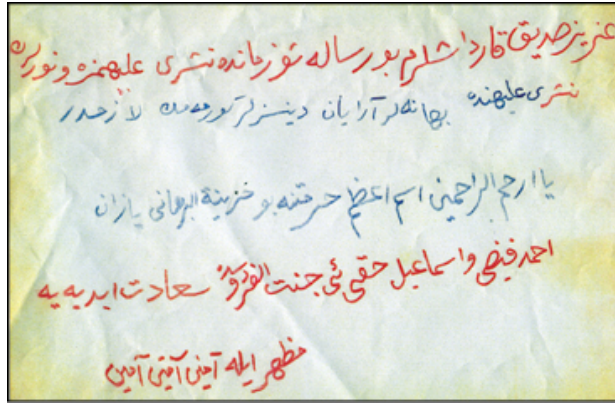 عزیز صدیق قارداشلرم بو رساله شو زمانده نشری علیهمزه و نورلرڭ
نشری علیهنده بهانه لر آرایان دینسزلر كورمەمك لازمدر
یا ارحم الراحمین اسم اعظم حرمتنه بو خزینة البرهانی یازان
احمد فیضی و اسماعیل حقی یی جنت الفردوسده سعادت ابدیه یه
مظهر ایله آمین آمین آمین